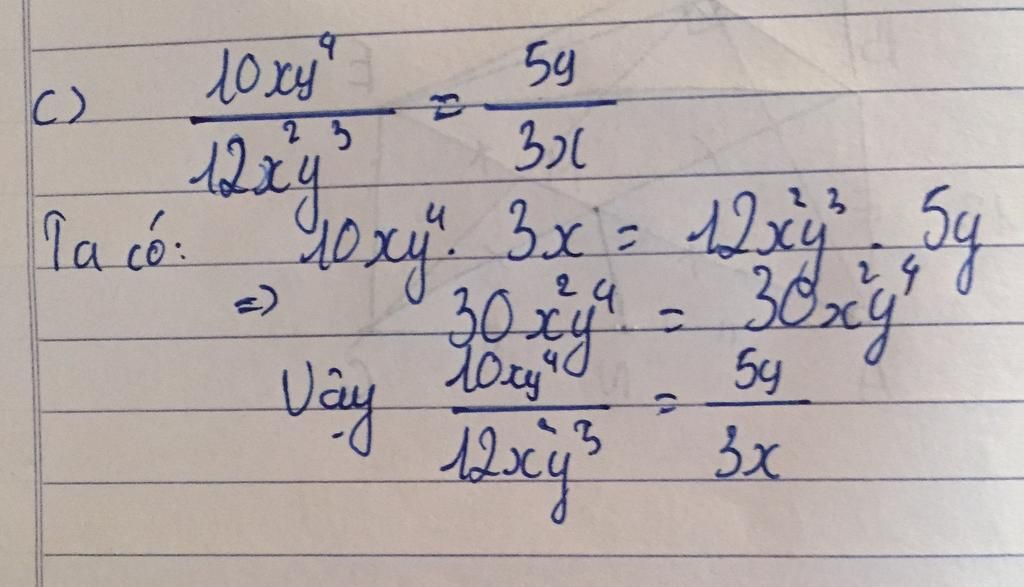 c) 10xy⁴ / 12x²y³ = 5y / 3x
Ta có: 10xy⁴. 3x = 12x²y³ . 5y
=> 30x²y⁴. = 30x²y⁴
Vậy 10xy⁴ / 12x²y³ = 5y / 3x